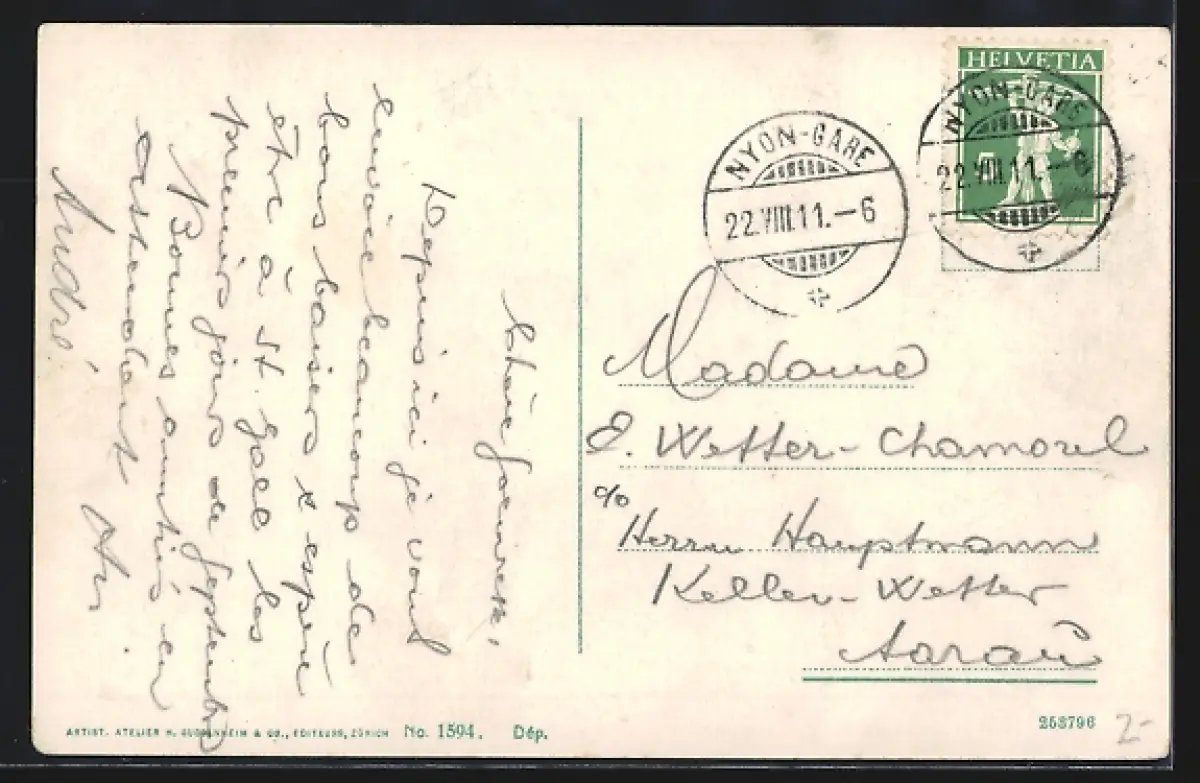 HELVETIA
NYON-GARE
22.VIII.11.-8
NYON-GARE
22.VIII.11.-6
Madame
E. Wetter-Chamorel
c/o
Herrn Hauptmann
Keller-Wetter
Aarau
Chère
Depuis ici je vous
envoie beaucoup de
bons baisers & espère
être à St. Gall les
premiers jours de Septembre
Bonnes amitiés en
attendant
André
ARTIST. ATELIER H. GUGGENHEIM & CO., EDITEURS, ZÜRICH No. 1594. Dép.
253796
2-